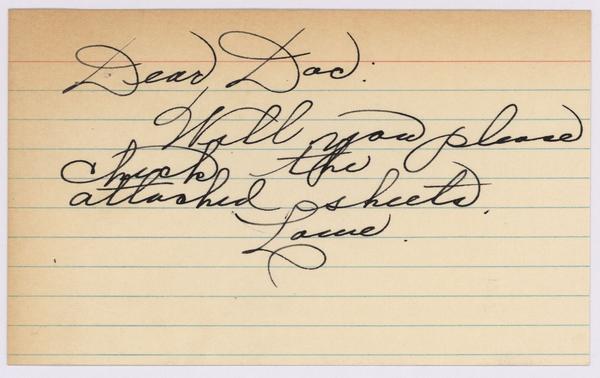 Dear Doc:
Will you please
check the
attached sheets.
Lowe.